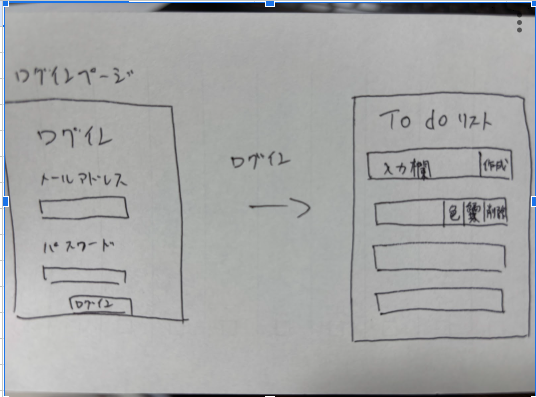 ログインページ
ログイン
メールアドレス
パスワード
ログイン
ログイン
To do リスト
入力欄 作成
色 削除